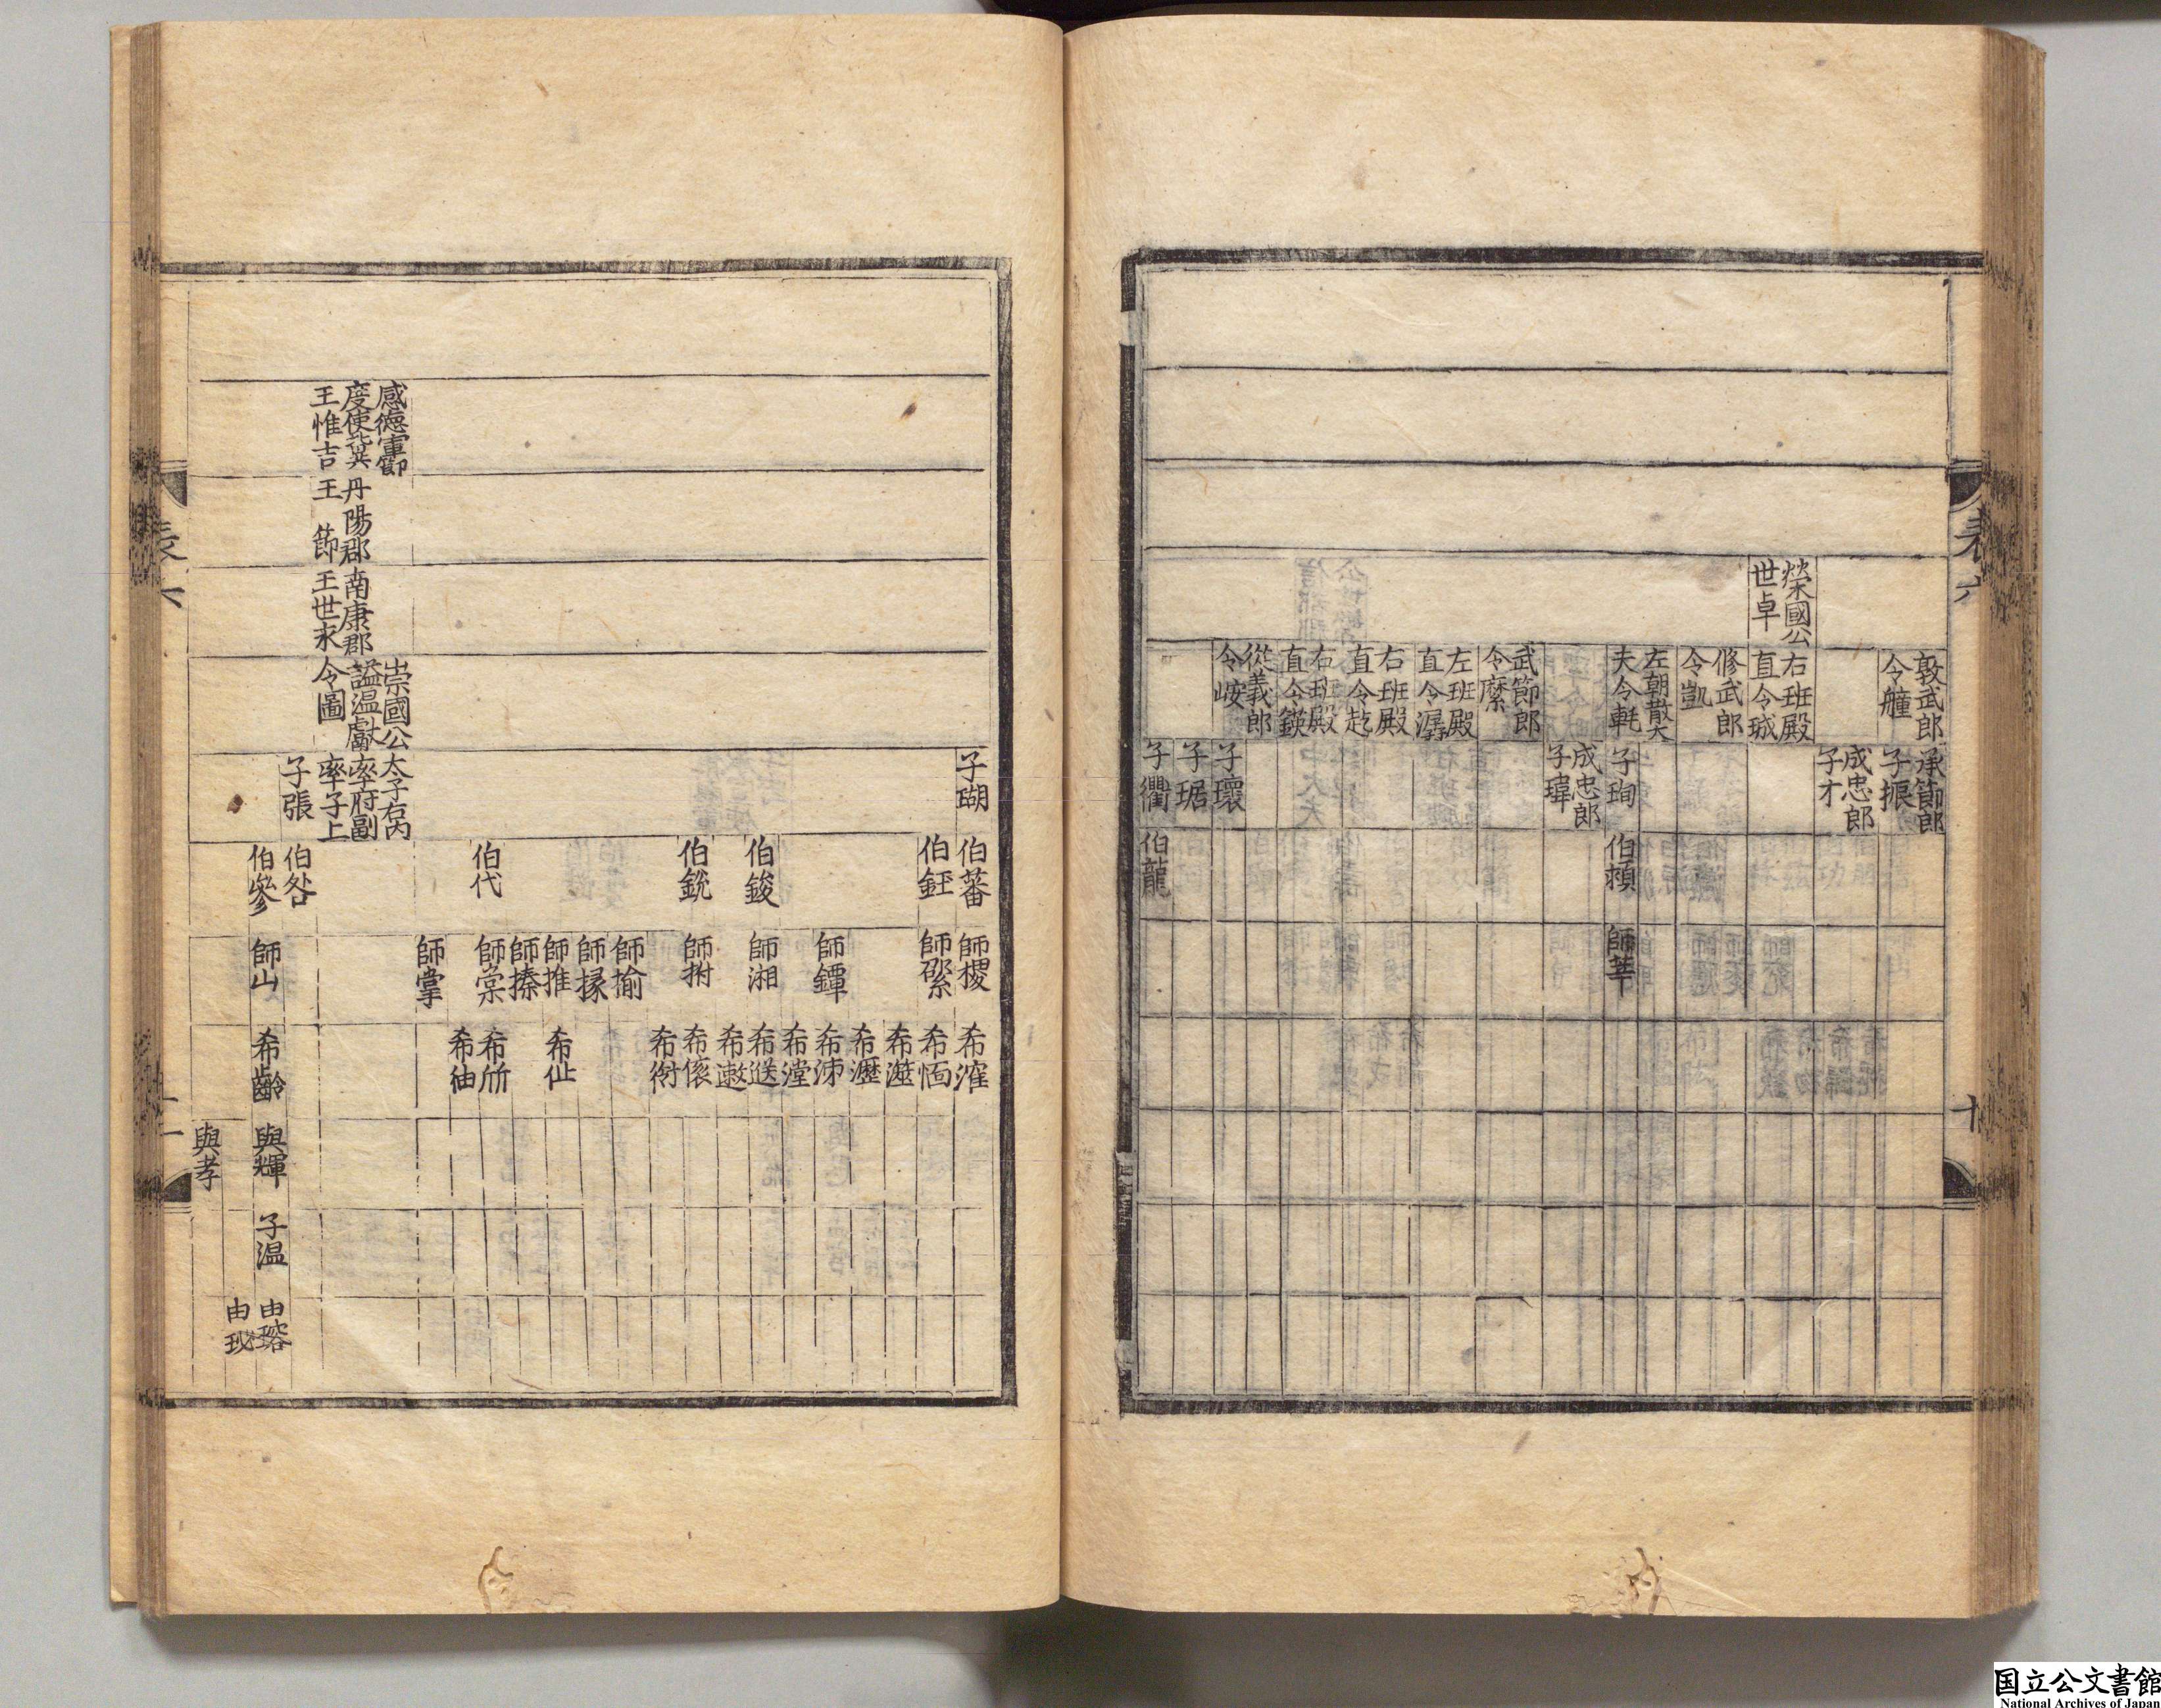 表六
敦武郎
令艟
承節郎
子振
成忠郎
子才
榮國公
世卓
右班殿
直令珹
修武郎
令凱
左朝散大
夫令𨋢
子珣
伯頖
師莘
成忠郎
子瑋
武節郎
令縻
左班殿
直令潺
右班殿
直令趁
右班殿
直令鍈
從義郎
令峖
子瓌
子琚
子衢
伯龍
十
子瑚
伯蕃
師㮨
希漥
伯鉟
師綮
希恓
希㴽
希瀝
師鐔
希涑
希漟
伯鋑
師湘
希送
希遬
伯銳
師拊
希㒟
希衬
師揄
師掾
師推
希㑉
師搸
伯代
師棠
希斻
希䌷
師掌
感德軍節
度使冀
王惟吉
丹陽郡
王節
南康郡
王世永
崇國公
謚温獻
令圖
太子右內
率府副
率子上
子張
伯明
伯參
師山
希齡
與輝
子溫
由瑢
由珳
與孝
表六
十一
国立公文書館
National Archives of Japan